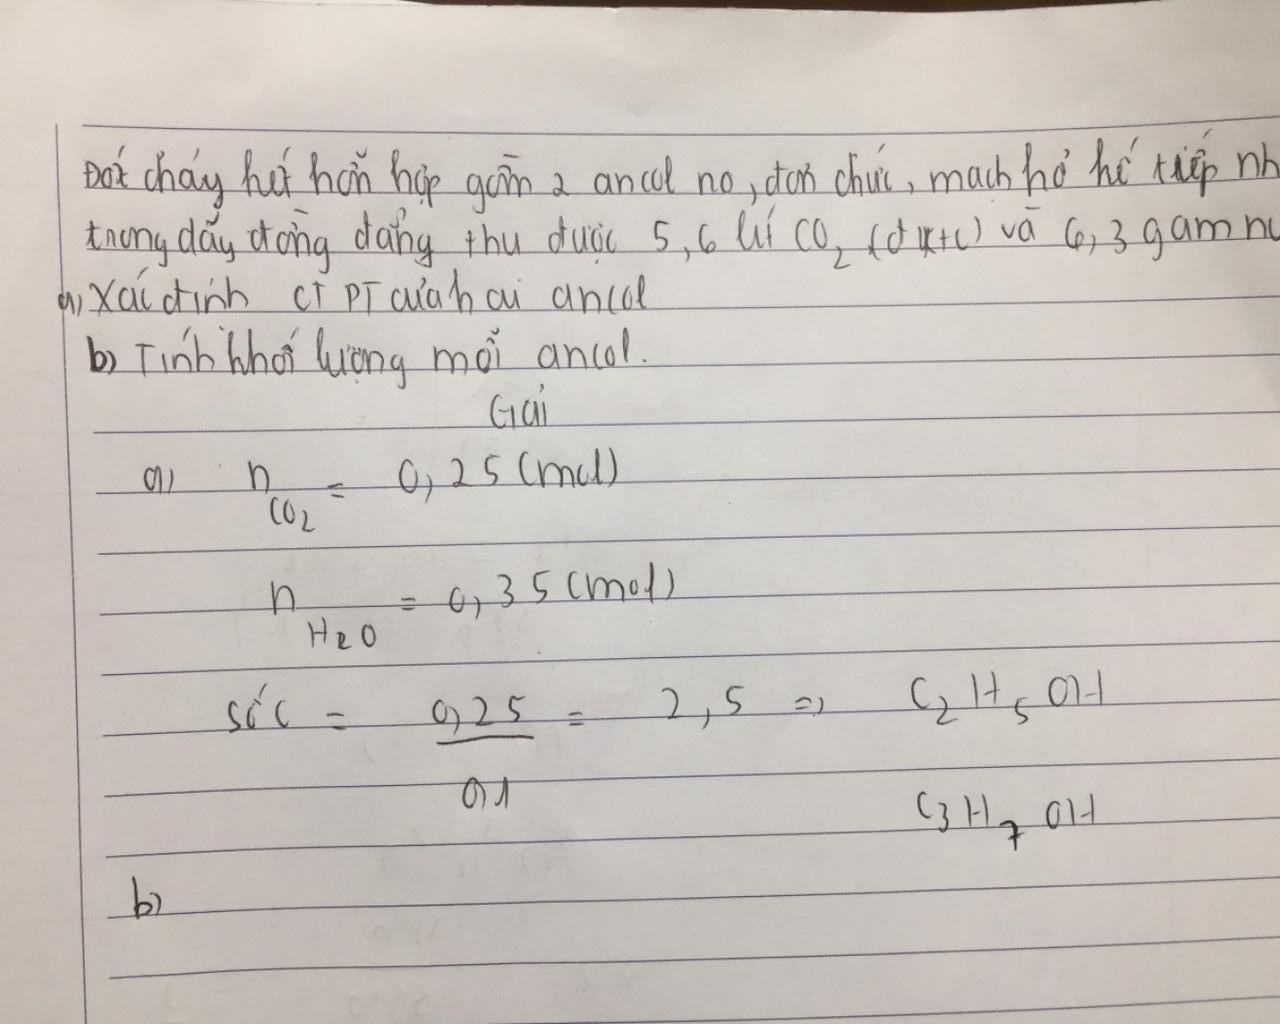 Đốt cháy hết hỗn hợp gồm 2 ancol no, đơn chức, mạch hở kế tiếp nh
trong dãy đồng đẳng thu được 5,6 lít CO2 (đktc) và 6,3 gam nư
a) Xác định CTPT của hai ancol
b) Tính khối lượng mỗi ancol.
Giải
a) nCO2 = 0,25 (mol)
nH2O = 0,35 (mol)
số C = 0,25 / 0,1 = 2,5 => C2H5OH
C3H7OH
b)